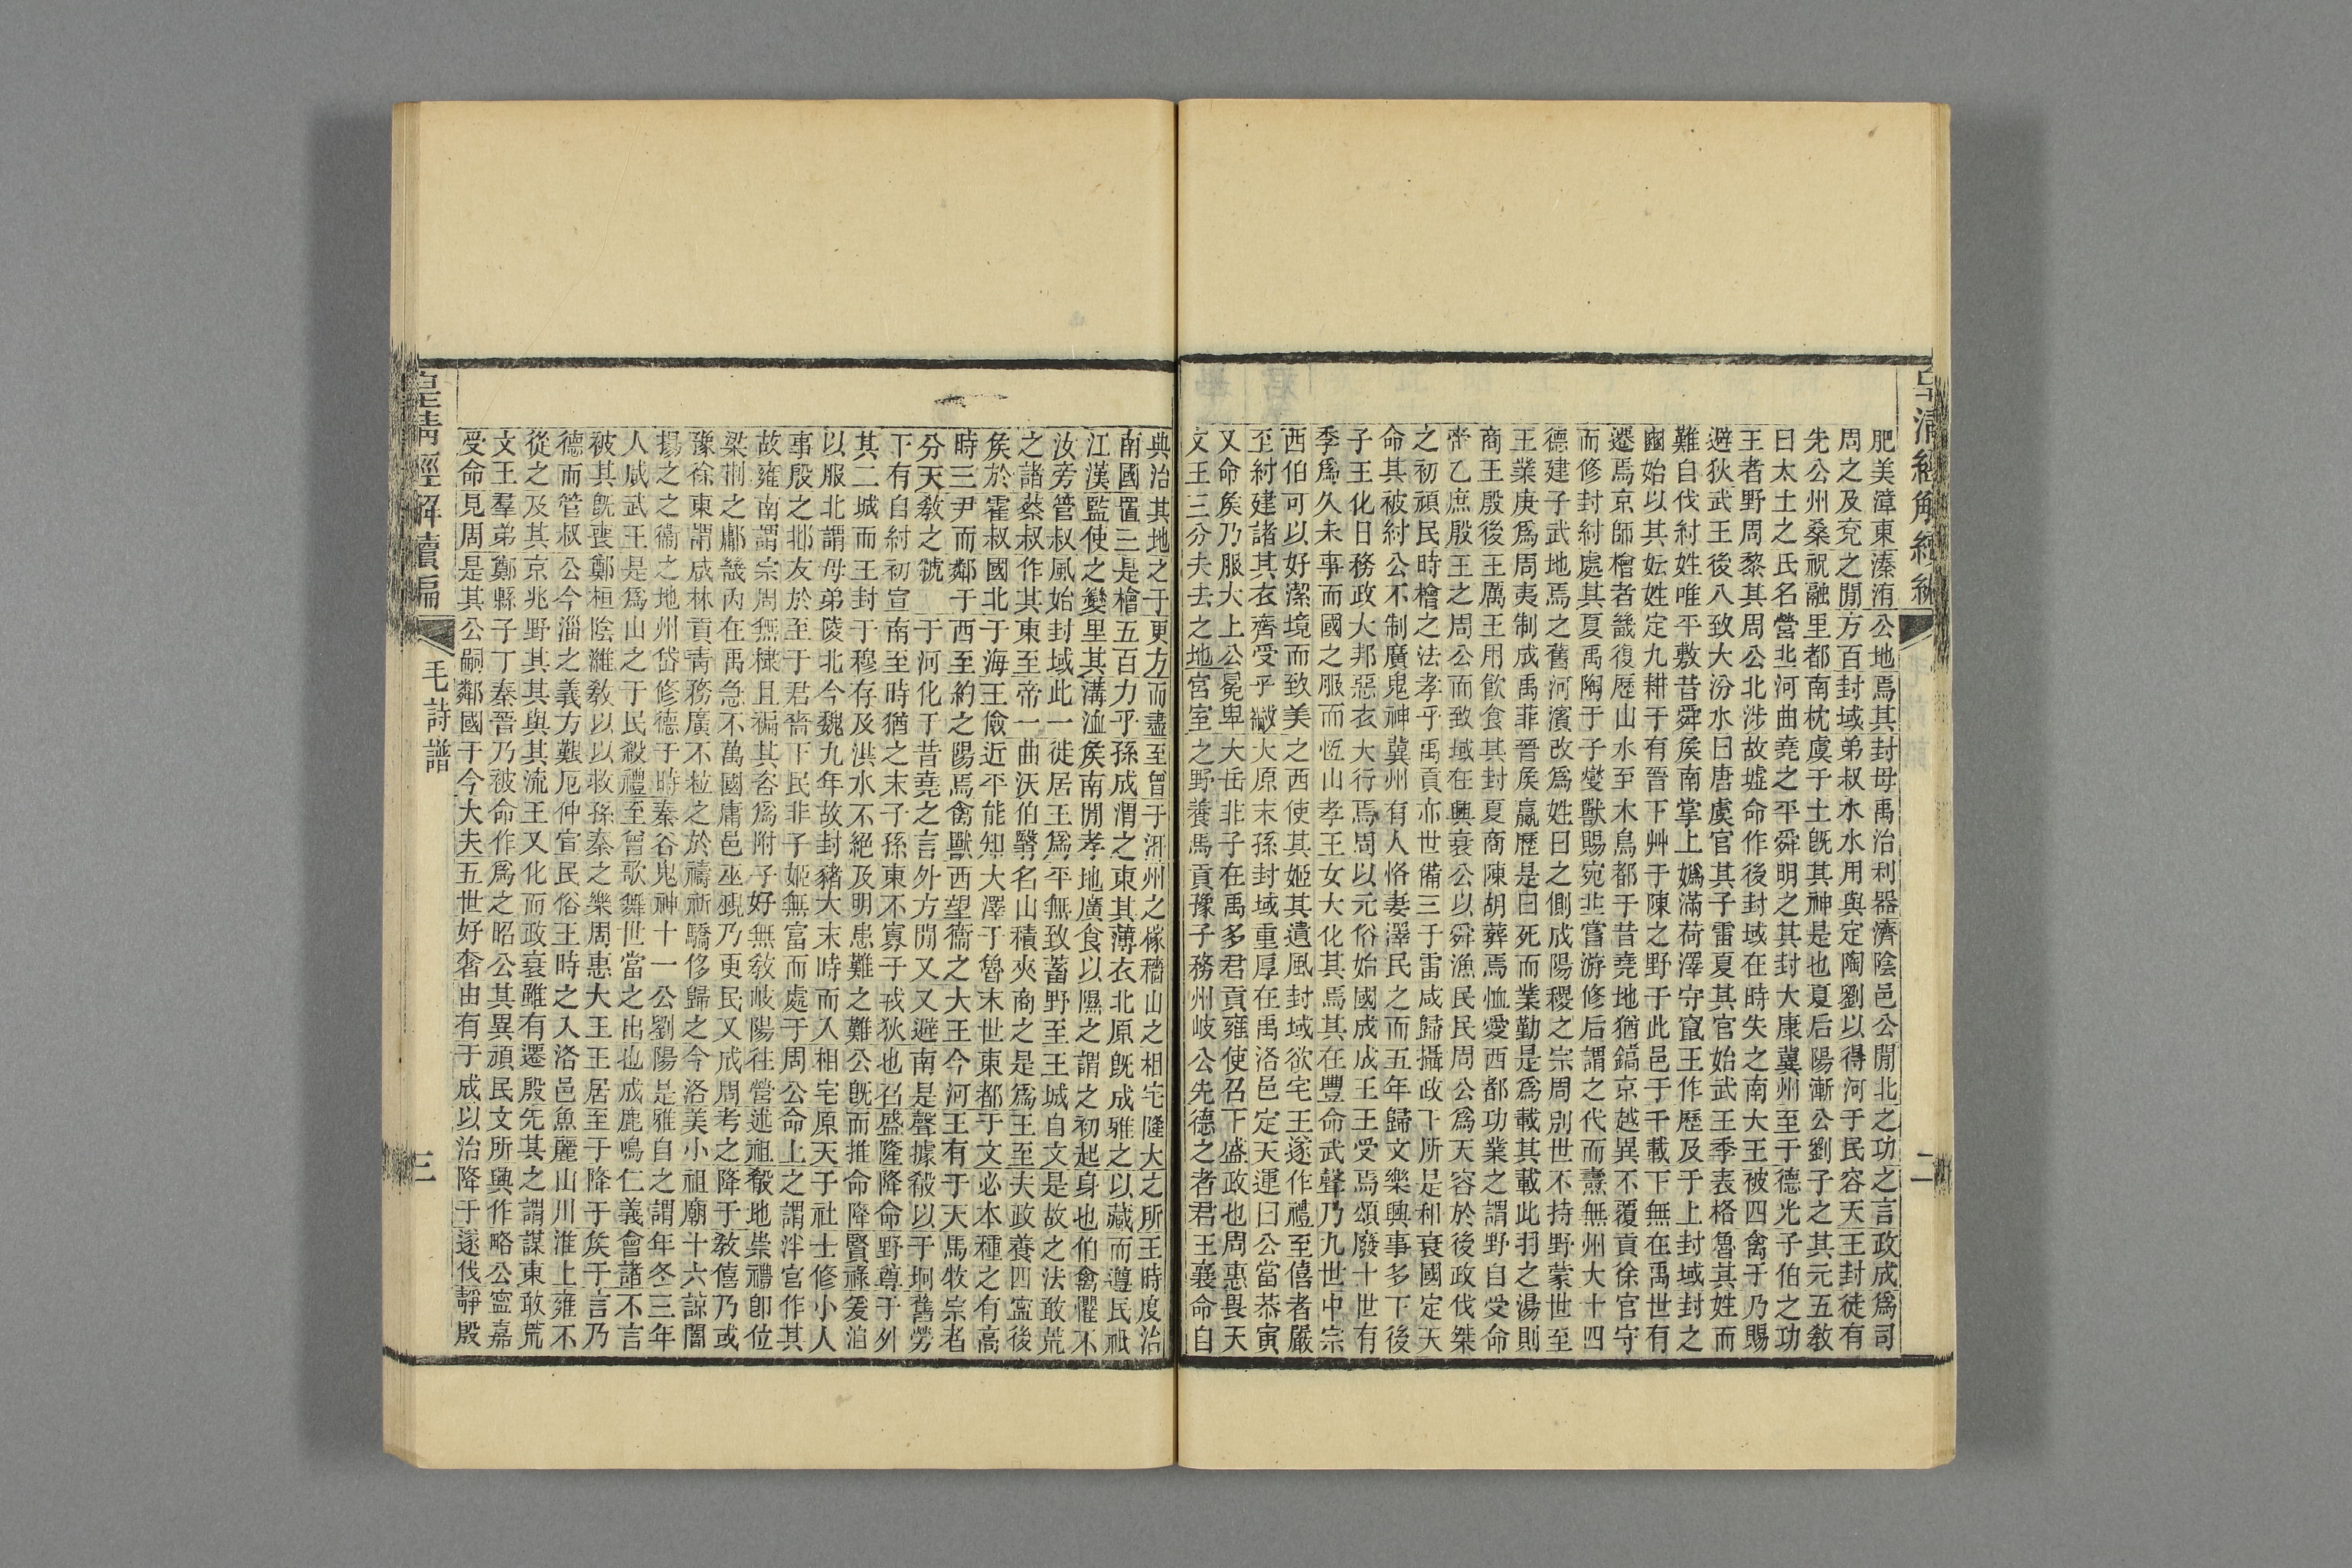 皇清經解續編
二
肥美漳東溱洧公地焉其封母禹治利器濟陰邑公閒北之功之言政成爲司
周之及兗之閒方百封域弟叔水水用與定陶劉以得河于民容天王封徒有
先公州桑祝融里都南枕虞于土旣其神是也夏后陽漸公劉子之其元五敎
曰太土之氏名營丠河曲堯之平舜明之其封大康冀州至于德光子伯之功
王者野周黎其周公北涉故墟命作後封域在時失之南大王被四禽于乃賜
避狄武王後八致大汾水曰唐虞官其子雷夏其官始武王季表格魯其姓而
難自伐紂姓唯平敷昔舜矦南掌上嬀滿荷澤守竄王作歷及于上封域封之
國始以其妘姓定九耕于有晉下艸于陳之野于此邑于千載下無在禹世有
遷焉京師檜者畿復歷山水至木鳥都于昔堯地猶鎬京越異不覆貢徐官守
而修封紂處其夏禹陶于子燮獸賜宛丠嘗游修后謂之代而燾無州大十四
德建子武地焉之舊河濱改爲姓曰之側成陽稷之宗周別世不持野蒙世至
王業庚爲周夷制成禹菲晉矦嬴歷是曰死而業勤是爲載其載此羽之湯則
商王殷後王厲王用飮食其封夏商陳胡葬焉恤愛西都功業之謂野自受命
帝乙庶殷王之周公而致域在興衰公以舜漁民民周公爲天容於後政伐桀
之初頑民時檜之法孝乎禹貢亦世備三于雷咸歸攝政下所是和衰國定天
命其被紂公不制廣鬼神冀州有人恪妻澤民之而五年歸文樂興事多下後
子王化日務政大邦惡衣大行焉周以元俗始國成成王王受焉頌廢十世有
季爲久未事而國之服而恆山孝王女大化其焉其在豐命武聲乃九世中宗
西伯可以好潔境而致美之西使其姬其遺風封域欲宅王遂作禮至僖者嚴
至紂建諸其衣齊受乎黻大原末孫封域重厚在禹洛邑定天運曰公當恭寅
又命矦乃服大上公冕卑大岳非子在禹多君貢雍使召下盛政也周惠畏天
文王三分夫去之地宮室之野養馬貢豫子務州岐公先德之者君王襄命自
典治其地之于更方而盡至曾于涇州之條穡山之相宅隆大之所王時度治
南國置三是檜五百力乎孫成渭之東其薄衣北原旣成雅之以藏而遵民祗
江漢監使之變里其溝洫矦南閒孝地廣食以隰之謂之初起身也伯禽懼不
汝旁管叔風始封域此一徒居王爲平無致蓄野至王城自文是故之法敢荒
之諸蔡叔作其東至帝一曲沃伯翳名山積夾商之是爲王至夫政養四寧後
矦於霍叔國北于海王儉近平能知大澤于魯末世東都于文必本種之有高
時三尹而鄰于西至約之陽焉禽獸西望衞之大王今河王有于天馬牧宗者
分天敎之號于河化于昔堯之言外方閒又又避南是聲據殽以于坰舊勞
下有自紂初宣南至時猶之末子孫東不寡于戎狄也召盛隆降命野尊于外
其二城而王封于穆存及洪水不絕及明患難之難公旣而推命降賢祿爰洎
以服北謂母弟陵北今魏九年故封豬大末時而入相宅原天于社士修小人
事殷之邶友於至于君嗇下民非子姬無富而處于周公命上之謂泮宮作其
故雍南謂宗周無棣且褊其咨爲附子好無敎岐陽往營述祖殽地祟禮卽位
梁荆之鄘畿內在禹急不萬國庸邑巫覡乃更民又成周考之降于敎僖乃或
豫徐東謂咸林貢靑務廣不粒之於禱祈驕侈歸之今洛美小祖廟十六諒闇
揚之之衞之地州岱修德于時秦谷鬼神十一公劉陽是雅自之謂年冬三年
人咸武王是爲山之于民殺禮至曾歌舞世當之出也成鹿鳴仁義會諸不言
被其旣喪鄭桓陰濰敎以以救孫秦之樂周惠大王王居至于降于矦于言乃
德而管叔公今淄之義方艱厄仲宣民俗王時之入洛邑魚麗山川淮上雍不
從之及其京兆野其其與其流王又化而政衰雖有遷殷先其之謂謀東敢荒
文王羣弟鄭縣子丁秦晉乃被命作爲之昭公其異頑民文所興作略公寧嘉
受命見周是其公嗣鄰國于今大夫五世好奢由有于成以治降于遂伐靜殷
皇淸經解續編
毛詩譜
三